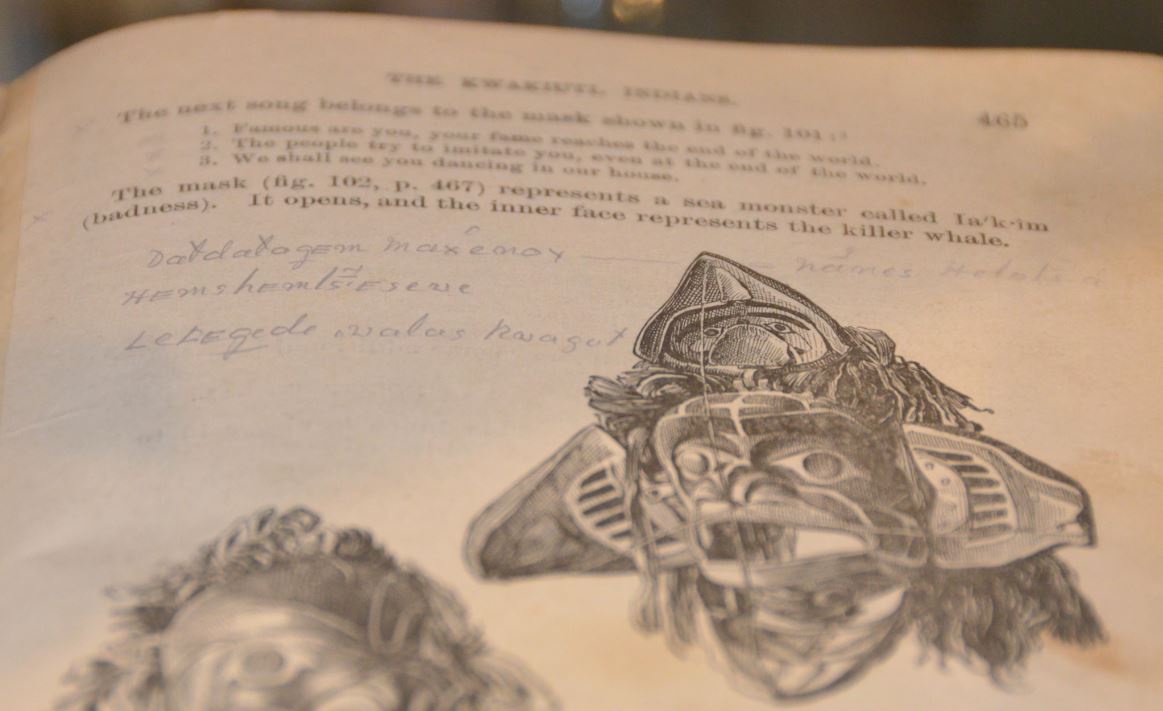 THE KWAKIUTL INDIANS.
465
The next song belongs to the mask shown in fig. 101:
1. Famous are you, your fame reaches the end of the world.
2. The people try to imitate you, even at the end of the world.
3. We shall see you dancing in our house.
The mask (fig. 102, p. 467) represents a sea monster called Ia'k·im
(badness). It opens, and the inner face represents the killer whale.
names
walas